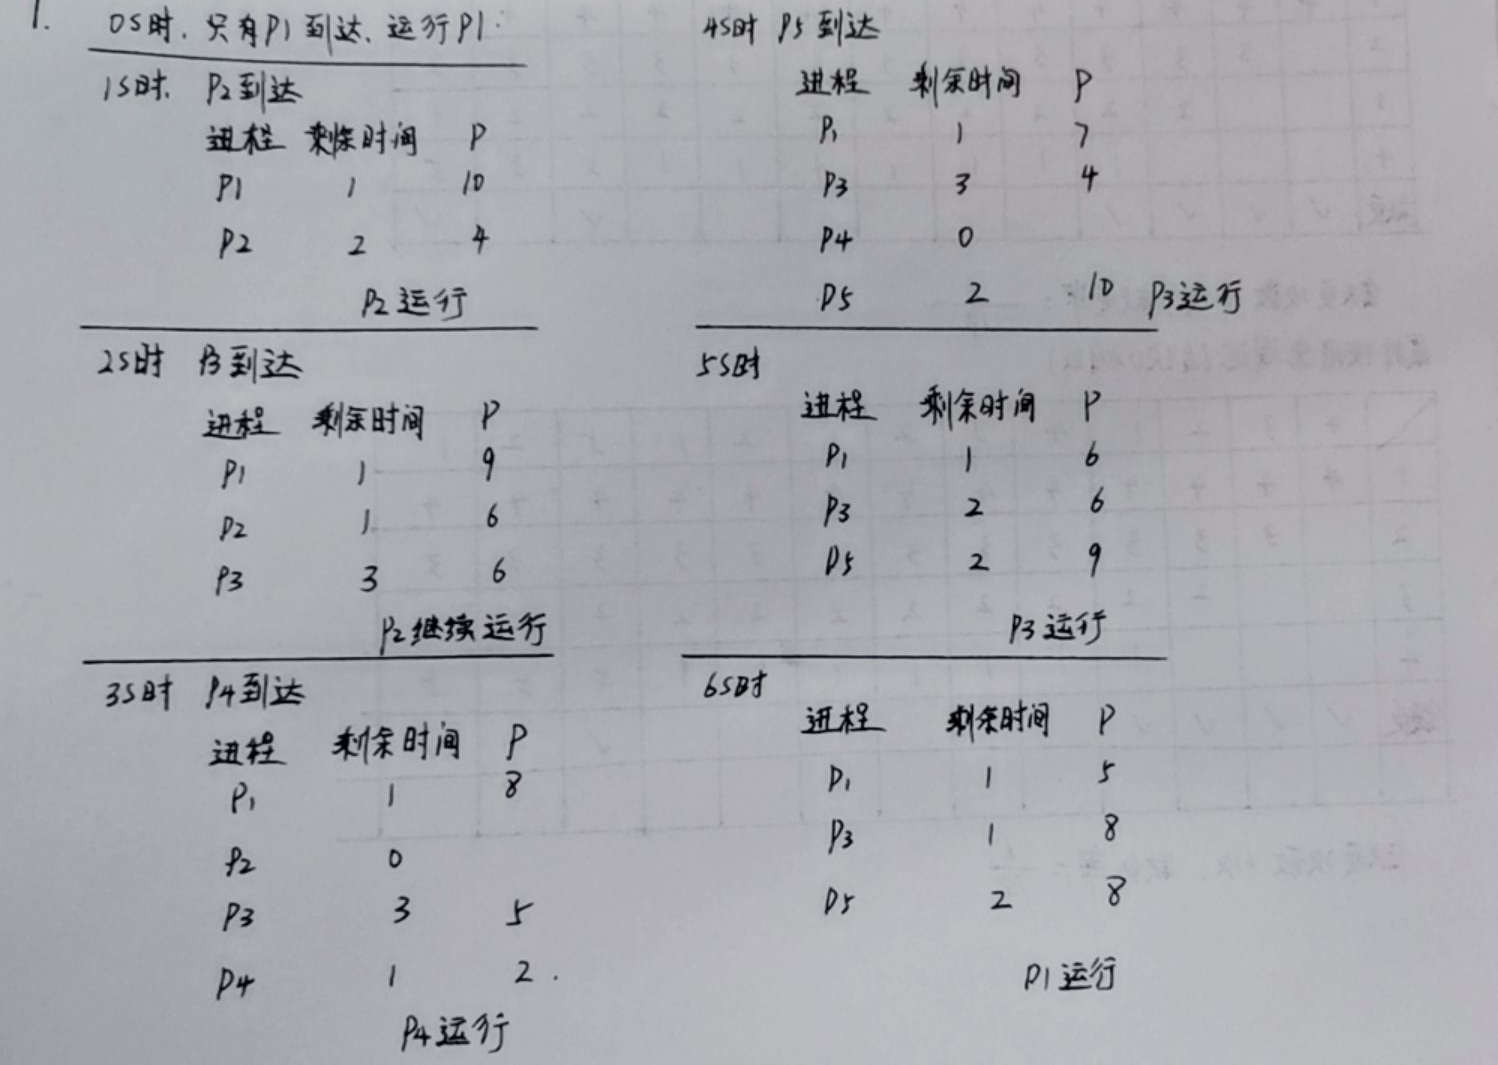 1. 0S时、只有P1到达、运行P1.
1S时、P2到达
进程 剩余时间 P
P1 1 10
P2 2 4
P2运行
2S时 P3到达
进程 剩余时间 P
P1 1 9
P2 1 6
P3 3 6
P2继续运行
3S时 P4到达
进程 剩余时间 P
P1 1 8
P2 0
P3 3 5
P4 1 2.
P4运行
4S时 P5到达
进程 剩余时间 P
P1 1 7
P3 3 4
P4 0
P5 2 10 P3运行
5S时
进程 剩余时间 P
P1 1 6
P3 2 6
P5 2 9
P3运行
6S时
进程 剩余时间 P
P1 1 5
P3 1 8
P5 2 8
P1运行